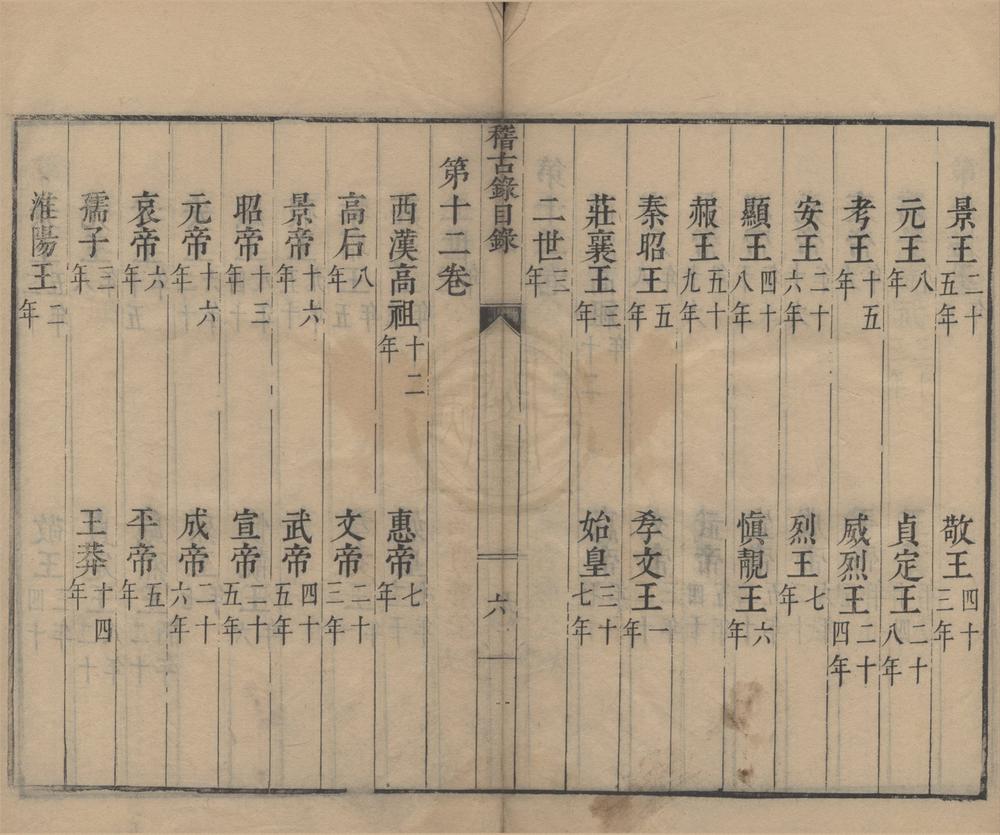 景王二十五年　敬王四十三年
元王八年　貞定王二十八年
考王十五年　威烈王二十四年
安王二十六年　烈王七年
顯王四十八年　慎靚王六年
赧王五十九年
秦昭王五年　孝文王一年
莊襄王三年　始皇三十七年
二世三年
稽古錄目錄　六
第十二卷
西漢高祖十二年　惠帝七年
高后八年　文帝二十三年
景帝十六年　武帝四十五年
昭帝十三年　宣帝二十五年
元帝十六年　成帝二十六年
哀帝六年　平帝五年
孺子三年　王莽十四年
淮陽王二年